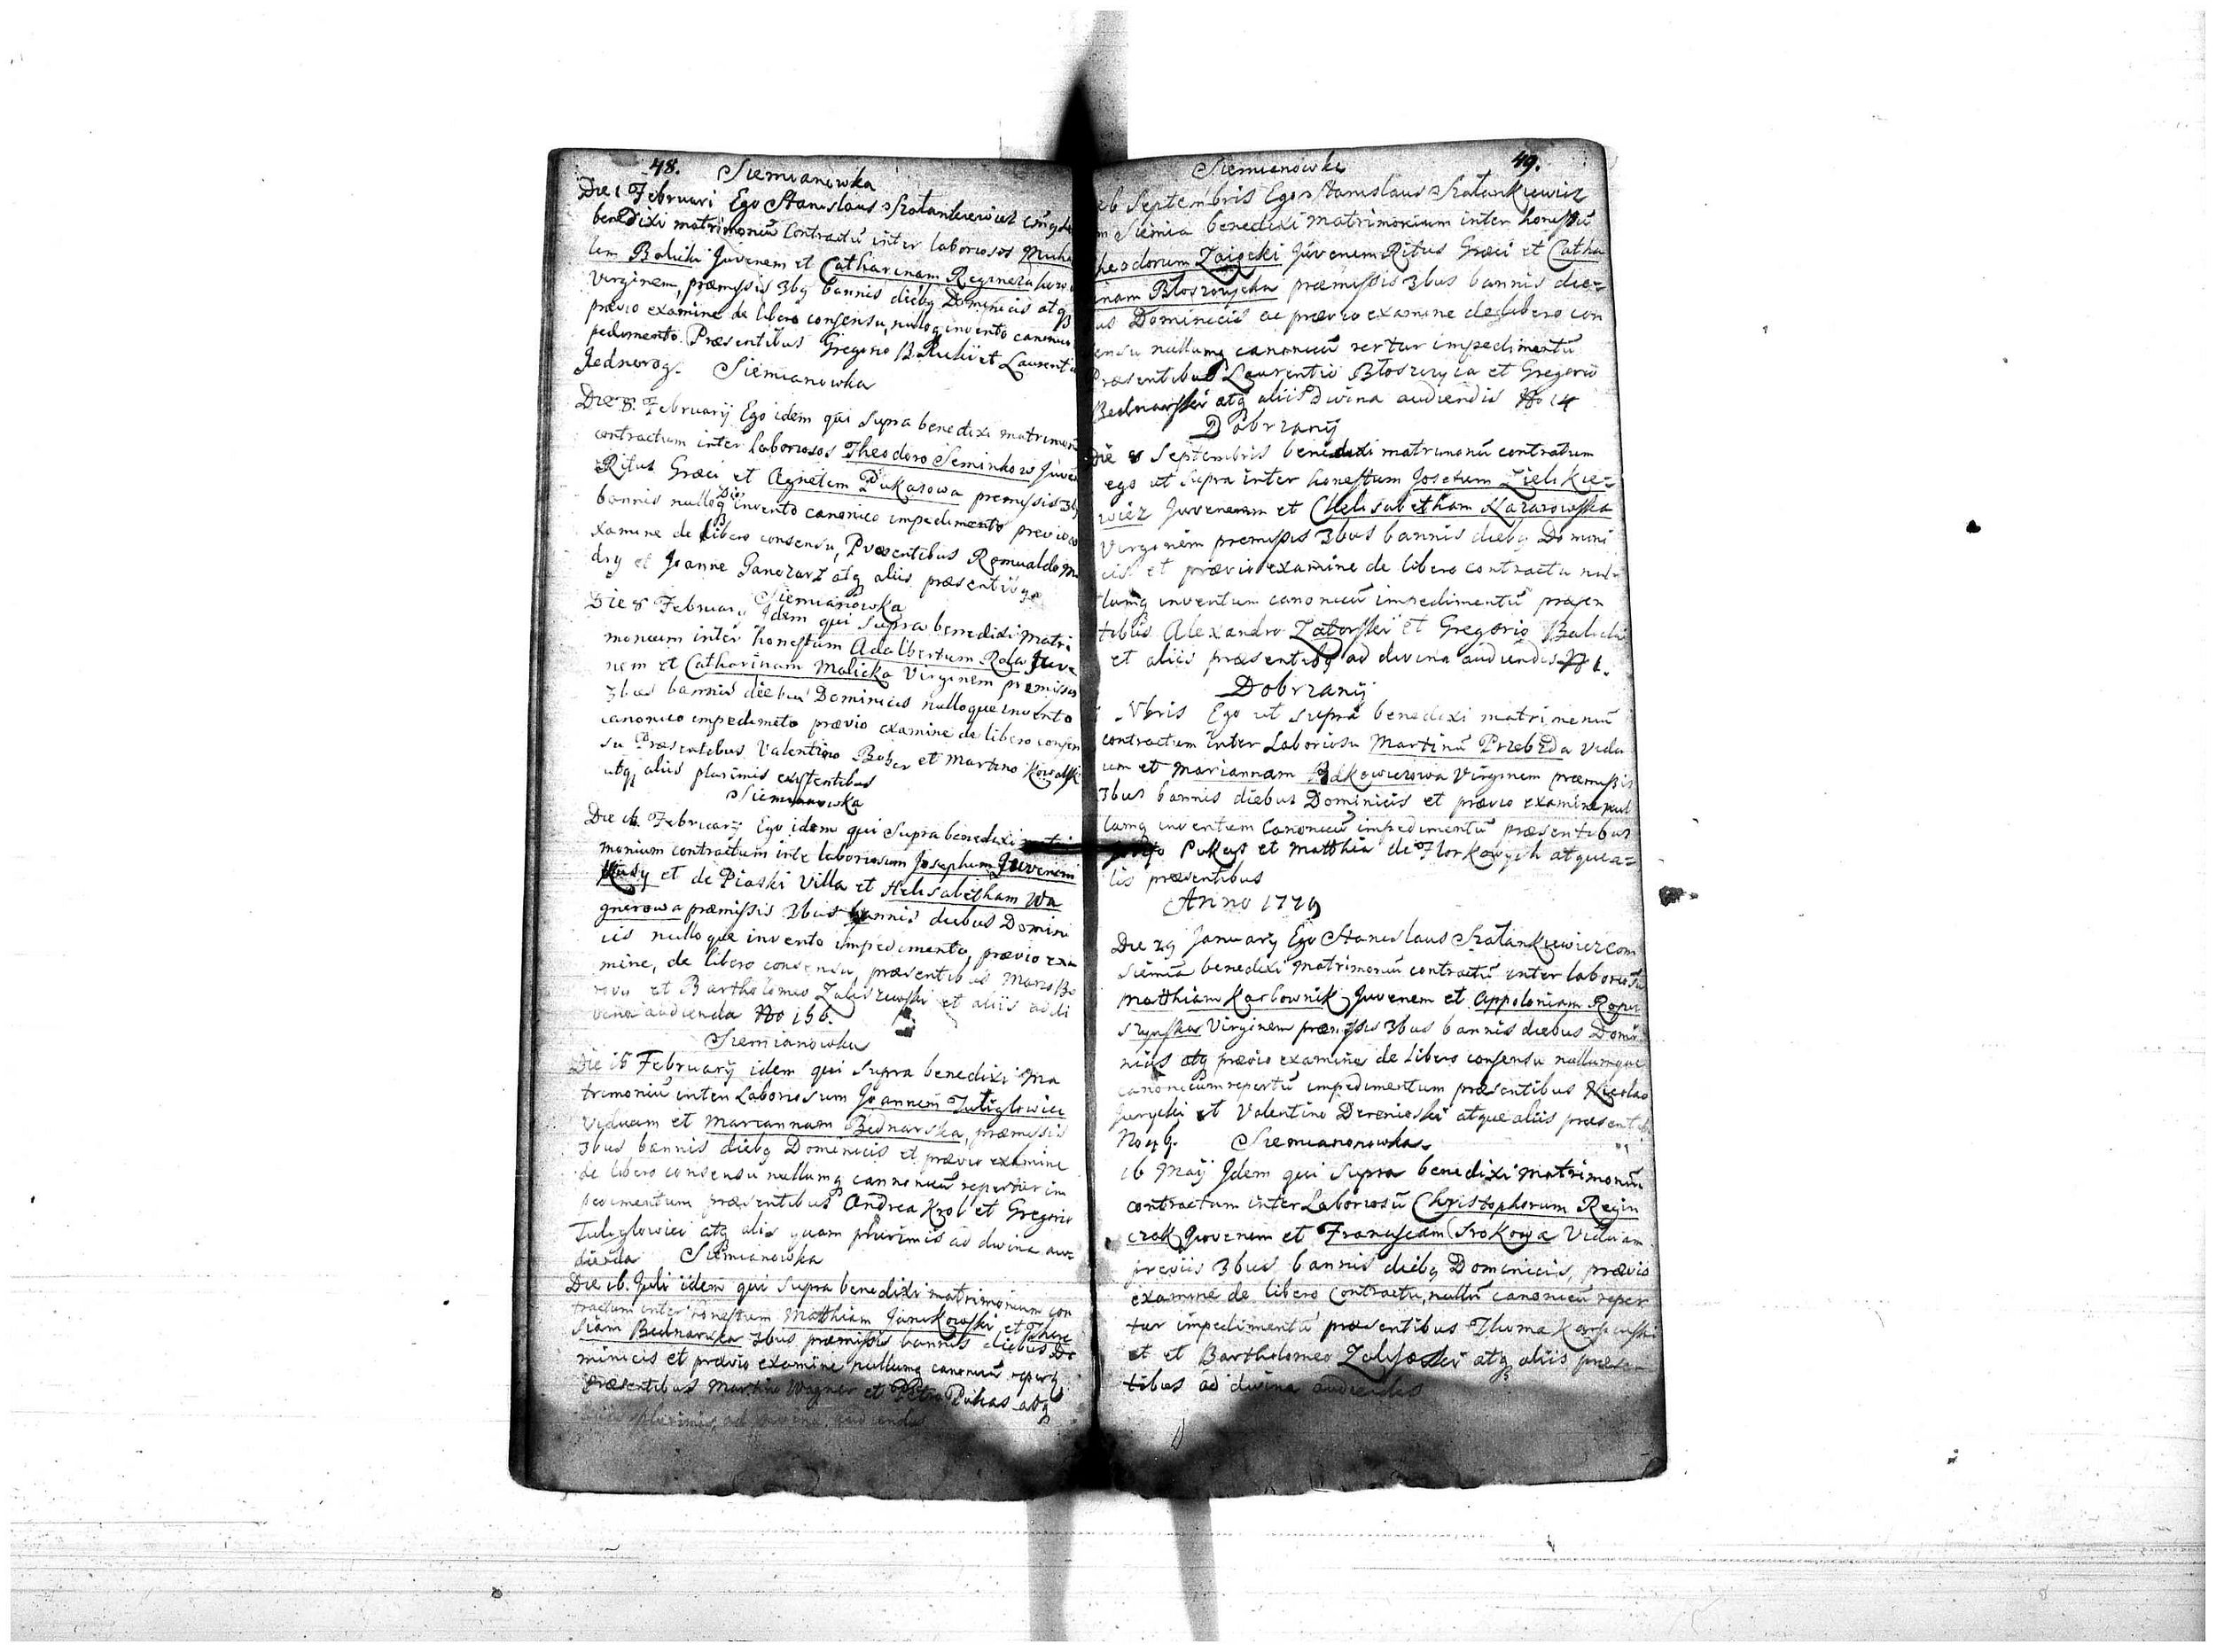 48. Siemianowka
Die 1 Februari Ego Stanislaus Szatankiewicz
benedixi matrimoniũ Contractũ inter laboriosos Micha
lem Balicki Juvenem et Catharinam
Virginem, præmissis 3bq bannis diebq Dominicis atq
prævio examine de libero consensu, nulloq invento canonico
pedimento. Præsentibus Gregorio Balicki et Laurenti
Jednorog. Siemianowka
Die 8. Februarij Ego idem qui supra benedixi matrimon
contractum inter laboriosos Theodoro Seminkow Juve
Ritus Græci et Agnetem Pukasowa premissis 3bq
bannis nulloq invento canonico impedimento previo
xamine de libero consensu, Præsentibus Romualdo
dry et Joanne Ganczarz atq aliis præsentibq
Siemianowka
Die 8 February Idem qui supra benedixi Matri
monium inter honestum Adalbertum Rola Juve
nem et Catharinam Malicka Virginem premissis
3bus bannis diebus Dominicis nulloque invento
canonico impedimeto prævio examine de libero consen
su Præsentibus Valentino Bober et Martino Kowalski
atq aliis plurimis existentibus
Siemianowka
Die 16. February Ego idem qui supra benedixi matri
monium contractum inte laboriosum Josephum Juvenem
Kudy et de Piaski Villa et Helisabetham Wa
gnerowa præmissis 3bus bannis diebus Domini
cis nulloque invento impedimento, prævio exa
mine, de libero consensu, præsentibus
et Bartholomeo Zaliszewski et aliis ad di
vina audienda No 156.
Siemianowka
Die 16 February idem qui supra benedixi Ma
trimoniũ inter Laboriosum Joannem Tuliglowicz
Viduum et Mariannam Bednarska, præmissis
3bus bannis diebq Dominicis et prævio examine
de libero consensu nullumq cannonicũ repertur im
pedimentum præsentibus Andrea Krol et Gregorio
Tuliglowicz atq aliis quam plurimis ad divina au=
dienda Siemianowka
Die 16. Juli idem qui supra benedixi matrimonium con
tractum inter honestum Matthiam Janikowski et There
siam Bednarska 3bus præmissis bannis diebus Do
minicis et prævio examine nullumq canonicũ
Præsentibus Martino Wagner et Petro Pukas atq
aliis plurimis, ad divina audienda
49.
Siemianowka
Septembris Ego Stanislaus Szatankiewicz
m Siemia benedixi Matrimonium inter honestũ
heodorum Zaigcki Juvenem Ritus Græci et Catha
inam præmissis 3bus bannis die=
us Dominicis ac prævio examine de libero con
ensu nullumq canonicũ rertur impedimentũ
Præsentibus Laurentio et Gregorio
Bednarski atq aliis Divina audiendis No 14
Dobrzanÿ
Die 8 Septembris benedixi matrimonũ contratum
ego ut supra inter honestum Josefum Zielikie=
wicz Juvenem et Helisabetham Nazarowska
Virginem premissis 3bus bannis diebq Domini
cis et prævio examine de libero contractu nul
lumq inventum canonicũ impedimentũ præsen
tibus Alexandro Zatorski et Gregorio Balicki
et aliis præsentibq ad divina audiendis No 1.
Dobrzanij
Nbris Ego ut supra benedixi matrimoniũ
contractum inter Laboriosũ Martinũ Przebzda vidu
um et Mariannam Virginem præmissis
3bus bannis diebus Dominicis et prævio examine nul
lumq inventum Canonicũ impedimentũ præsentibus
Pukas et Matthia de Florkowych atque a=
liis præsentibus
Anno 1779
Die 29 January Ego Stanislaus Szatankiewicz Com
Siemia benedixi Matrimoniũ contractũ inter laboriosũ
Matthiam Karbownik Juvenem et Appoloniam
Virginem præmissis 3bus bannis diebus Domi
nicis atq prævio examine de libero consensu nullumque
canonicum repertũ impedimentum præsentibus Nicolao
Jurycki et Valentino atque aliis præsentib
Siemianonowka
16 Maij Idem qui supra benedixi Matrimoniũ
contractum inter Laboriosũ Christophorum Regin
czak Juvenem et Franciscam Srokowa Viduam
previis 3bus bannis diebq Dominicis, prævio
examine de libero Contractu, nullũ canonicũ reper
tur impedimentũ præsentibus Thoma
et et Bartholomeo atq aliis præsen
tibus ad divina audiendis